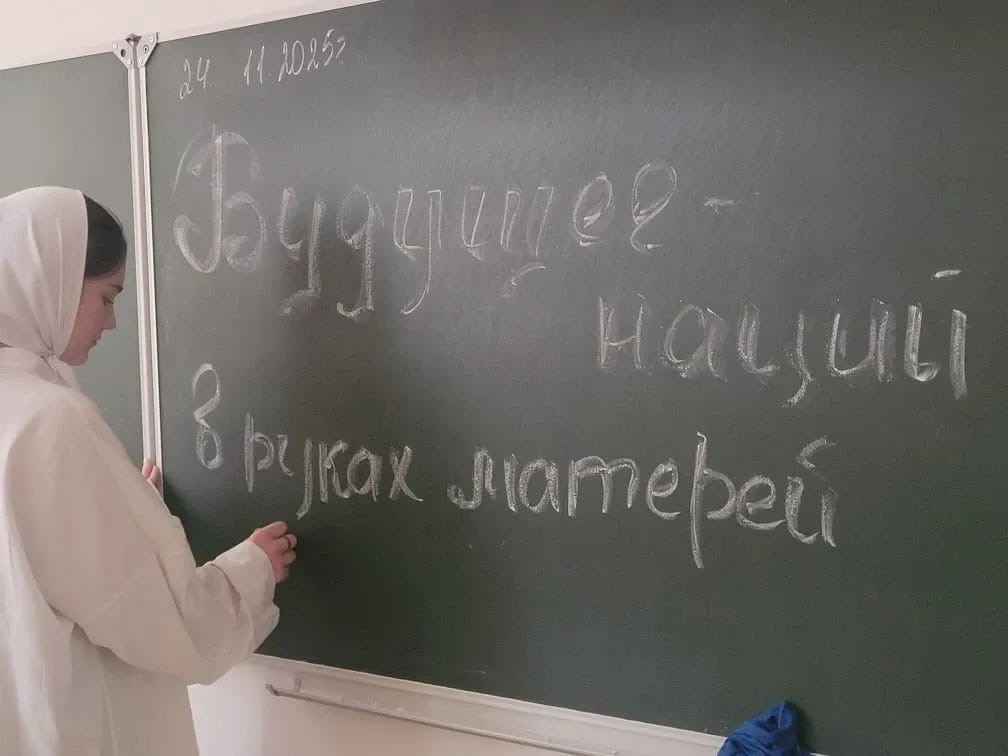 24. 11. 2025г
Будущее -
наций
в руках матерей